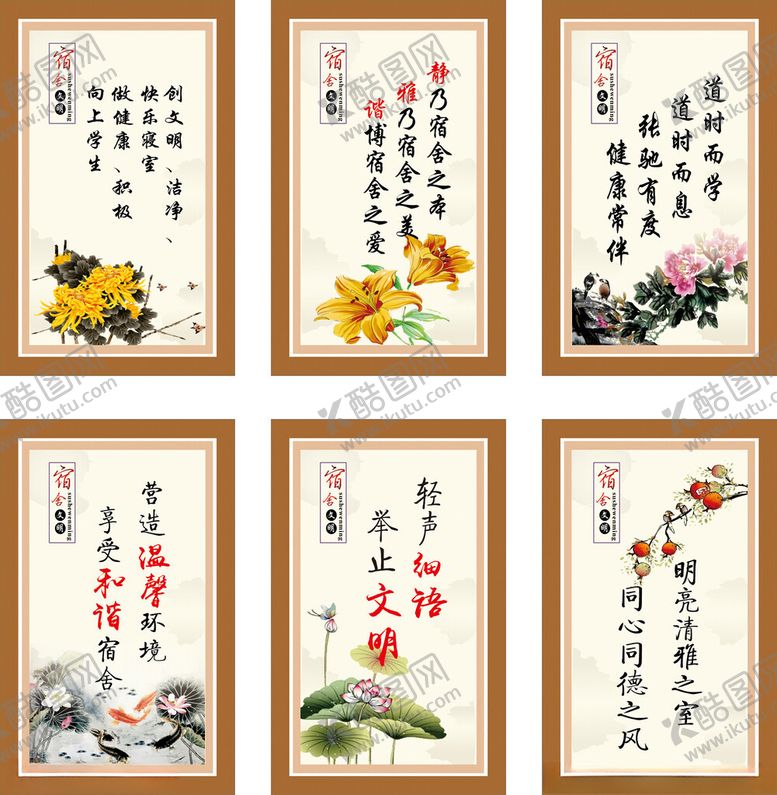 宿舍文明
sushewenming
创文明、洁净、
快乐寝室
做健康、积极
向上学生
宿舍文明
sushewenming
静乃宿舍之本
雅乃宿舍之美
谐博宿舍之爱
宿舍文明
sushewenming
道时而学
道时而息
张驰有度
健康常伴
宿舍文明
sushewenming
营造温馨环境
享受和谐宿舍
宿舍文明
sushewenming
轻声细语
举止文明
宿舍文明
sushewenming
明亮清雅之室
同心同德之风
酷图网
www.ikutu.com